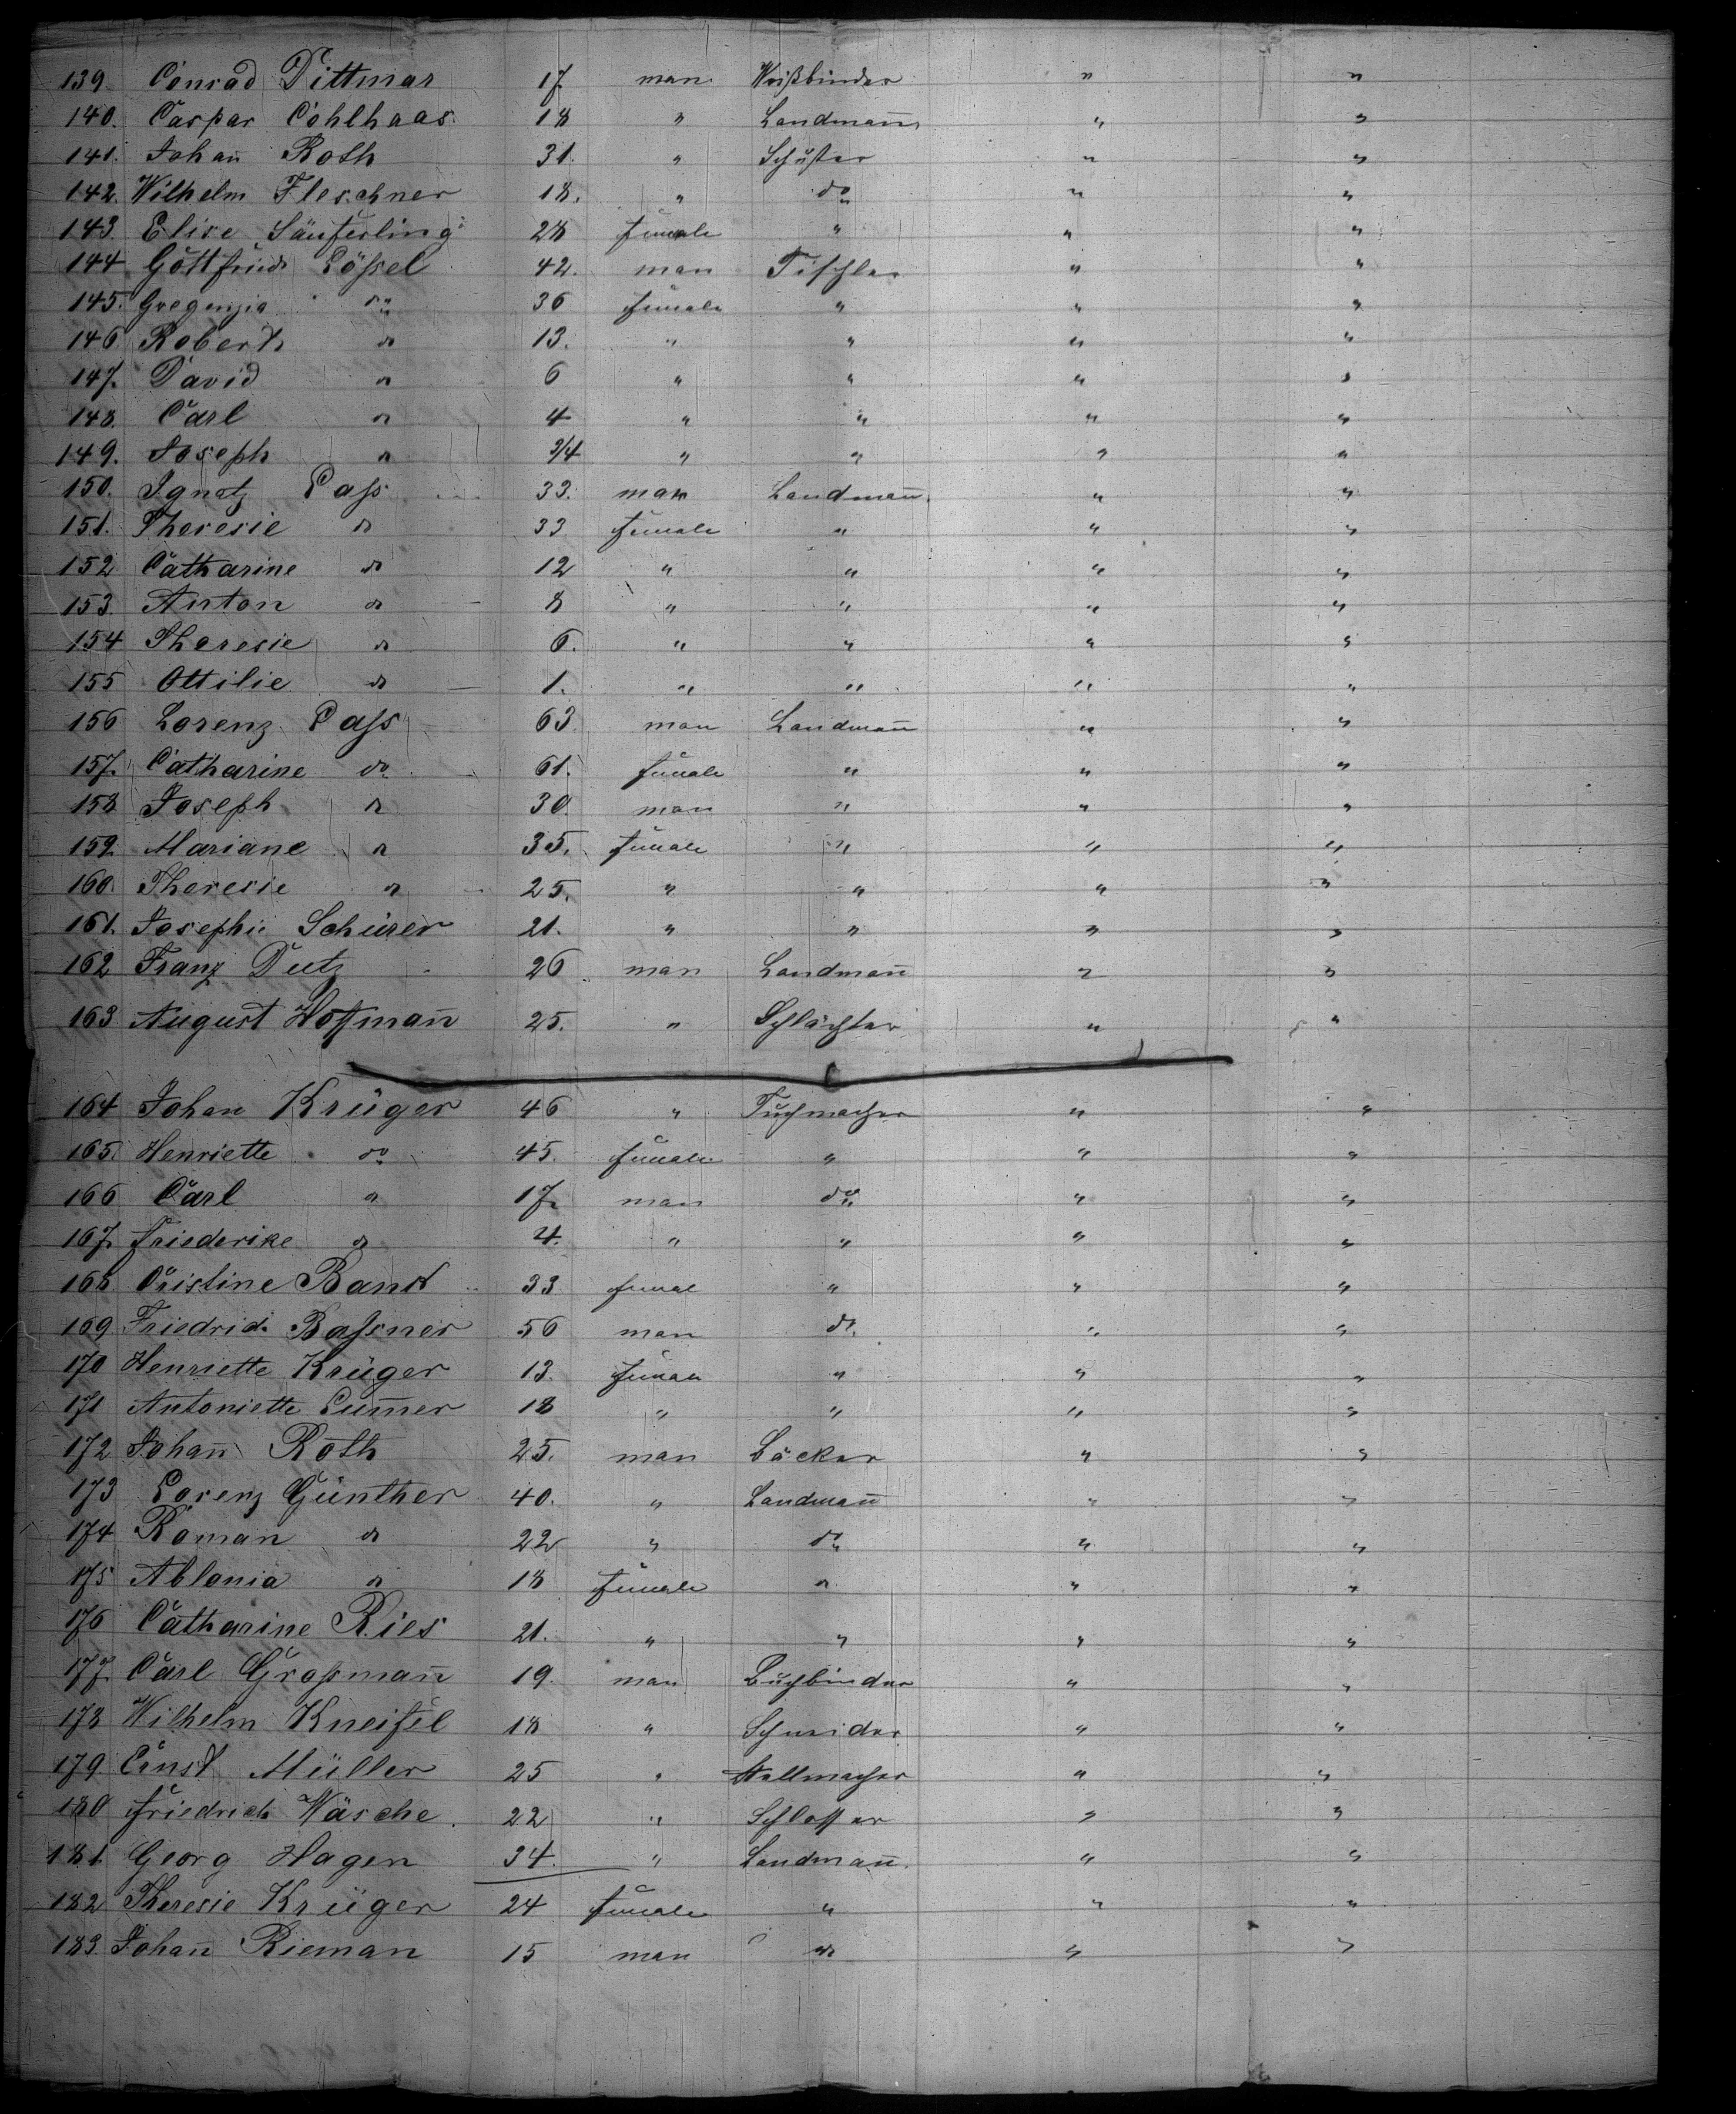 139. Conrad Dittmar 17 man Weißbinder " "
140. Caspar Cohlhaas 18 " Landmañ " "
141. Johañ Roth 31. " Schuster " "
142. Wilhelm Fleschner 18. " do " "
143 Elise Säuferling 28 female " " "
144 Gottfried Lößel 42. man Tischler " "
145. Gregenzia do 36 female " " "
146 Robert do 13. " " " "
147. David do 6 " " " "
148. Carl do 4 " " " "
149. Joseph do 3/4 " " " "
150. Ignatz Paſs 33. man Landmañ " "
151. Theresie do 33 female " " "
152 Catharine do 12 " " " "
153. Anton do 8 " " " "
154 Theresie do 6. " " " "
155 Ottilie do 1. " " " "
156 Lorenz Paſs 63 man Landmañ " "
157. Catharine do 61. female " " "
158 Joseph do 30. man " " "
159. Mariane do 35. female " " "
160. Theresie do 25. " " " "
161. Josephie Schürer 21. " " " "
162 Franz Deutz 26 man Landmañ " "
163 August Hoffmañ 25. " Schlächter " "
164 Johan Krüger 46 " Tuchmacher " "
165. Henriette do 45. female " " "
166 Carl do 17. man do " "
167. Friederike do 4. " " " "
168. Cristine Band 33 femal " " "
169 Friedrich Baſsner 56 man do " "
170 Henriette Krüger 13. female " " "
171 Antoniette 18 " " " "
172 Johañ Roth 25. man Bäcker " "
173 Lorenz Günther 40. " Landmañ " "
174 Roman do 22 " do " "
175 Ablonia do 18 female " " "
176 Catharine Ries 21. " " " "
177. Carl Groſsmañ 19. man Buchbinder " "
178 Wilhelm Kneifel 18 " Schneider " "
179 Ernst Müller 25 " Stellmacher " "
180 Friedrich Wäsche. 22 " Schlosser " "
181. Georg Hagen 34. " Landmañ. " "
182 Theresie Krüger 24 female " " "
183. Johañ Rieman 15 man do " "